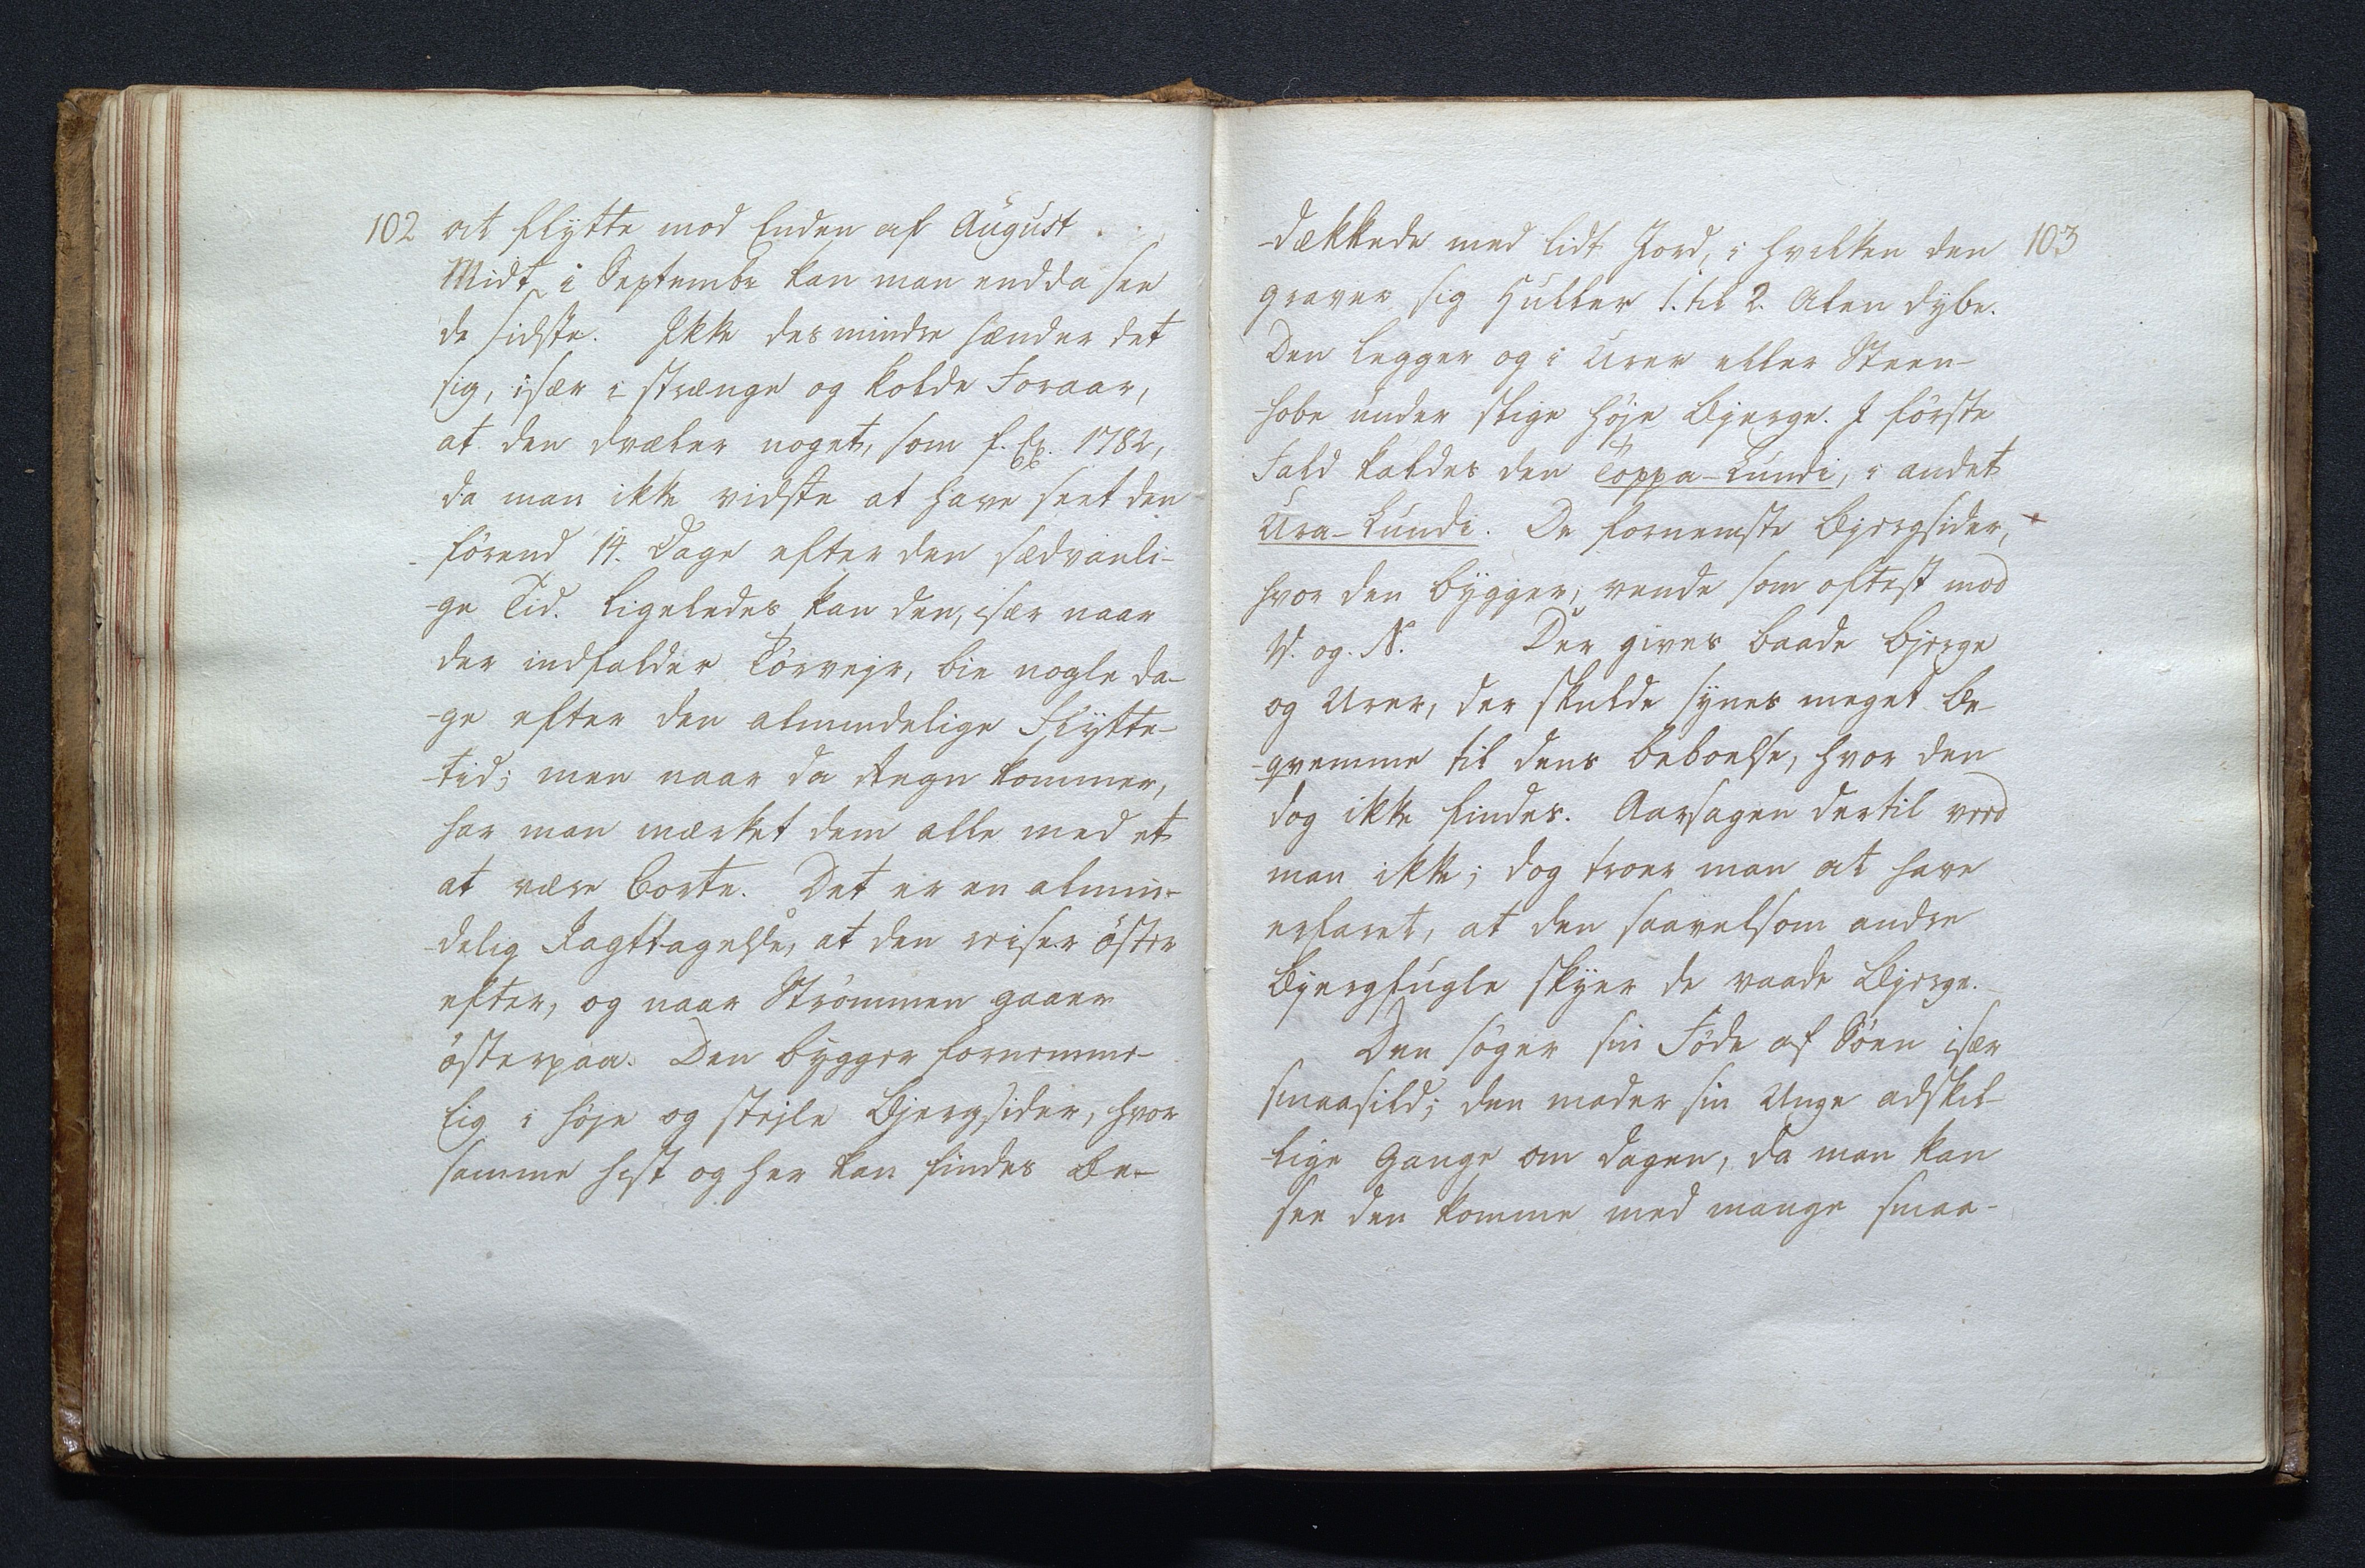 102
at flÿtte mod Enden af Aúgúst.
Midt i Septembr kan man endda see
de sidste. Ikke desmindre hænder det
sig, især i strænge og kolde Foraar,
at den dvæler noget, som f. Ex. 1782,
da man ikke vidste at have seet den
förend 14. Dage efter den sædvanli-
-ge Tid. Ligeledes kan den, især naar
der indfalder Törvejr, bie nogle da-
-ge efter den almindelige Flÿtte-
-tid; men naar da Regn kommer,
har man mærket dem alle med et
at være borte. Det er en almin-
delig Iagttagelse, at den reiser öster
efter, og naar Strömmen gaaer
österpaa. Den bÿgger fornemme-
lig i höje og stejle Bjergsider, hvor
samme hist og her kan findes be-
103
-dækkede med lidt Jord, i hvilken den
graver sig Húller 1. til 2. Alen dÿbe.
Den legger og i Urer eller Steen-
-hobe únder slige höje Bjerge. I förste
Fald kaldes den Toppa-Lúndi, i andet
Ura-Lúndi. De fornemste Bjergsider,
hvor den bÿgger, vende som oftest mod
V. og. N. Der gives baade Bjerge
og Urer, der skulde sÿnes meget be-
-qvemme til dens beboelse, hvor den
dog ikke findes. Aarsagen dertil veed
man ikke; dog troer man at have
erfaret, at den saavelsom andre
Bjergfúgle skÿer de vaade Bjerge.
Den söger sin Föde af Söen især
smaasild; den mader sin Unge adskil-
-lige Gange om dagen, da man kan
see den komme med mange smaa-